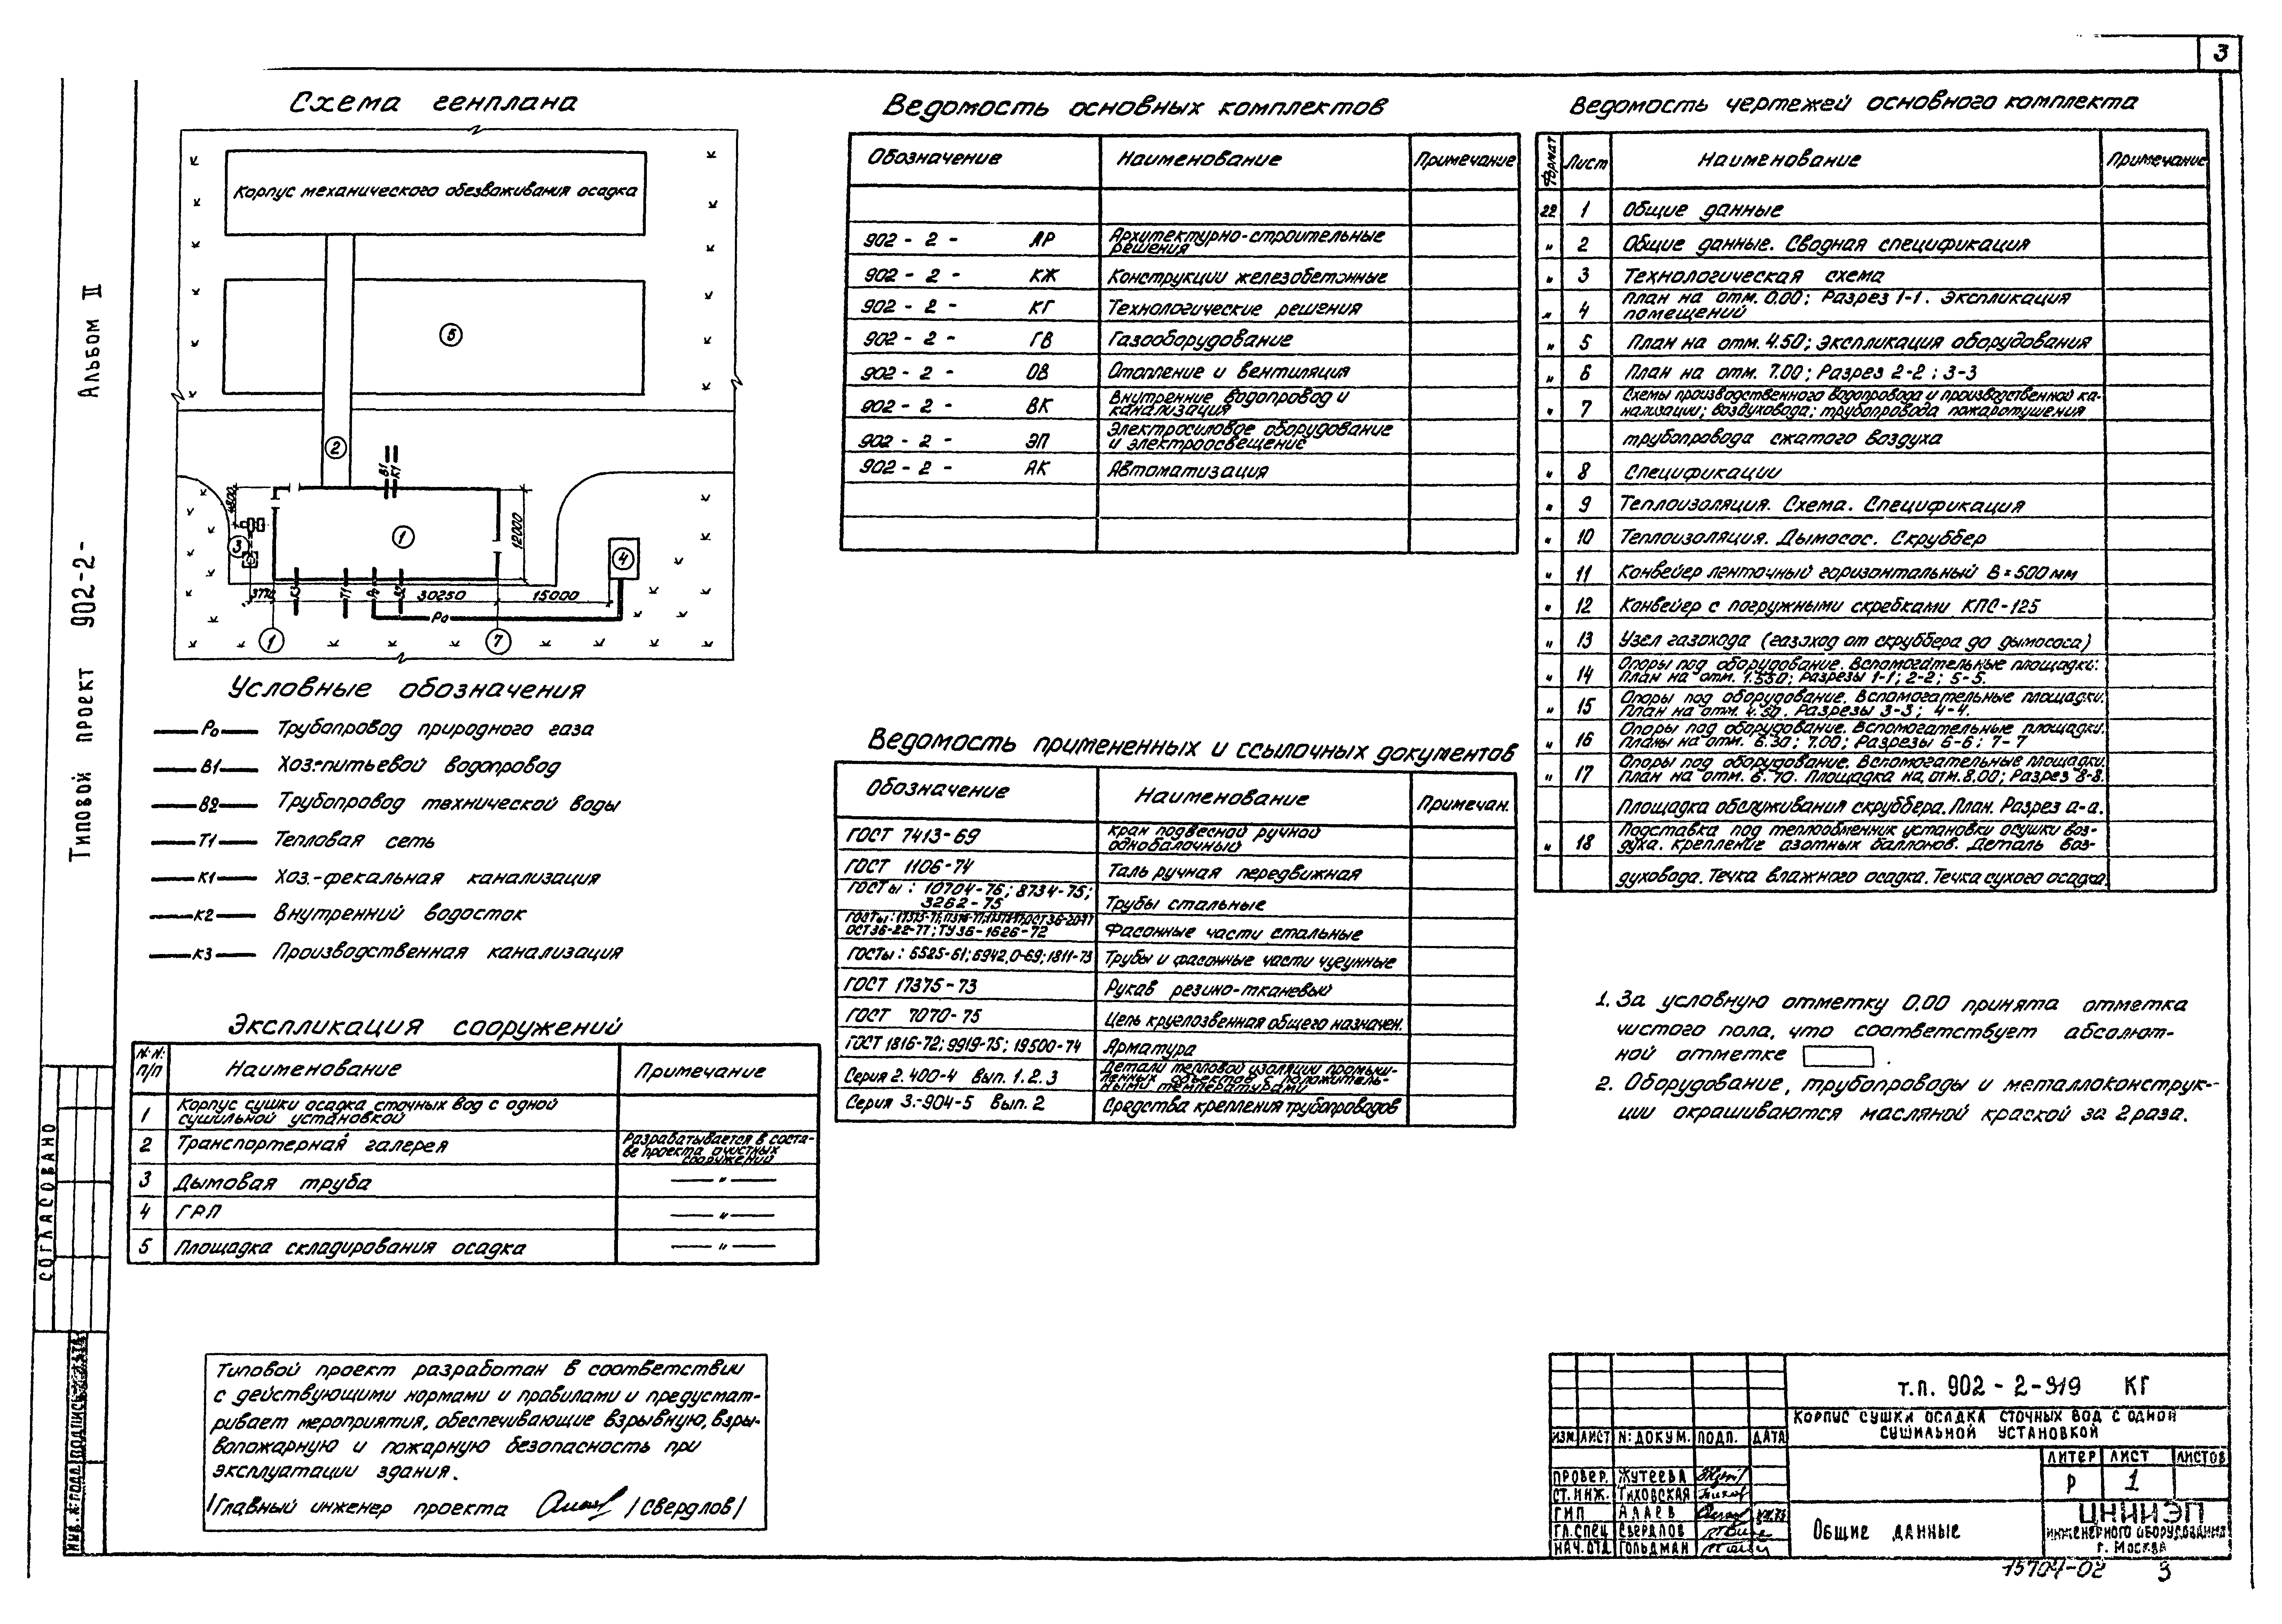 3
Типовой проект 902-2- Альбом II
СОГЛАСОВАНО
Схема генплана
Корпус механического обезваживания осадка
5
2
В1
К1
4800
12000
3
1
4
3770
К3
Т1
Р0
В2
30250
15000
Р0
1
7
Условные обозначения
Р0 Трубопровод природного газа
В1 Хоз-питьевой водопровод
В2 Трубопровод технической воды
Т1 Тепловая сеть
К1 Хоз.-фекальная канализация
К2 Внутренний водосток
К3 Производственная канализация
Экспликация сооружений
N:N: п/п Наименование Примечание
1 Корпус сушки осадка сточных вод с одной
сушильной установкой
2 Транспортерная галерея Разрабатывается в соста-
ве проекта очистных
сооружений
3 Дымовая труба — " —
4 ГРП — " —
5 Площадка складирования осадка — " —
Типовой проект разработан в соответствии
с действующими нормами и правилами и предусмат-
ривает мероприятия, обеспечивающие взрывную, взры-
вопожарную и пожарную безопасность при
эксплуатации здания.
/Главный инженер проекта /Свердлов/
Ведомость основных комплектов
Обозначение Наименование Примечание
902 - 2 - АР Архитектурно-строительные
решения
902 - 2 - КЖ Конструкции железобетонные
902 - 2 - КГ Технологические решения
902 - 2 - ГВ Газооборудование
902 - 2 - ОВ Отопление и вентиляция
902 - 2 - ВК Внутренние водопровод и
канализация
902 - 2 - ЭП Электросиловое оборудование
и электроосвещение
902 - 2 - АК Автоматизация
Ведомость примененных и ссылочных документов
Обозначение Наименование Примечан.
ГОСТ 7413-69 Кран подвесной ручной
однобалочный
ГОСТ 1106-74 Таль ручная передвижная
ГОСТы: 10704-76; 8734-75;
3262-75 Трубы стальные
ОСТ36-22-77; ТУ36-1626-72 Фасонные части стальные
ГОСТы: 6525-61; 6942,0-69; 1811-73 Трубы и фасонные части чугунные
ГОСТ 17375-73 Рукав резино-тканевый
ГОСТ 7070-75 Цепь круглозвенная общего назначен.
ГОСТ 1816-72; 9919-75; 19500-74 Арматура
Серия 2.400-4 Вып. 1.2.3 Детали тепловой изоляции промыш-
ленных объектов с положитель-
ными температурами
Серия 3.-904-5 Вып. 2 Средства крепления трубопроводов
Ведомость чертежей основного комплекта
Формат Лист Наименование Примечание
22 1 Общие данные
" 2 Общие данные. Сводная спецификация
" 3 Технологическая схема
" 4 План на отм. 0.00; Разрез 1-1. Экспликация
помещений
" 5 План на отм. 4.50; Экспликация оборудования
" 6 План на отм. 7.00; Разрез 2-2; 3-3
" 7 Схемы производственного водопровода и производственной ка-
нализации; воздуховода; трубопровода пожаротушения
трубопровода сжатого воздуха
" 8 Спецификации
" 9 Теплоизоляция. Схема. Спецификация
" 10 Теплоизоляция. Дымосос. Скруббер
" 11 Конвейер ленточный горизонтальный В=500мм
" 12 Конвейер с погружными скребками КПС-125
" 13 Узел газохода (газоход от скруббера до дымососа)
" 14 Опоры под оборудование. Вспомогательные площадки:
План на отм. 1.550; Разрезы 1-1; 2-2; 5-5.
" 15 Опоры под оборудование. Вспомогательные площадки.
План на отм. 4.50. Разрезы 3-3; 4-4.
" 16 Опоры под оборудование. Вспомогательные площадки.
Планы на отм. 6.30; 7.00; Разрезы 6-6; 7-7
" 17 Опоры под оборудование. Вспомогательные площадки.
План на отм. 6.70. Площадка на отм. 8.00; Разрез 8-8.
Площадка обслуживания скруббера. План. Разрез а-а.
" 18 Подставка под теплообменник установки осушки воз-
духа. Крепление азотных баллонов. Деталь воз-
духовода. Течка влажного осадка. Течка сухого осадка.
1. За условную отметку 0.00 принята отметка
чистого пола, что соответствует абсолют-
ной отметке .
2. Оборудование, трубопроводы и металлоконструк-
ции окрашиваются масляной краской за 2 раза.
т.п. 902 - 2-319 КГ
Корпус сушки осадка сточных вод с одной
сушильной установкой
Изм. Лист N: докум. Подп. Дата
Литер Лист Листов
Р 1
Провер. Жутеева
Ст. инж. Тиховская
ГИП Алаев
Гл. спец. Свердлов
Нач. отд. Гольдман
Общие данные
ЦНИИЭП
инженерного оборудования
г. Москва
15704-02 3